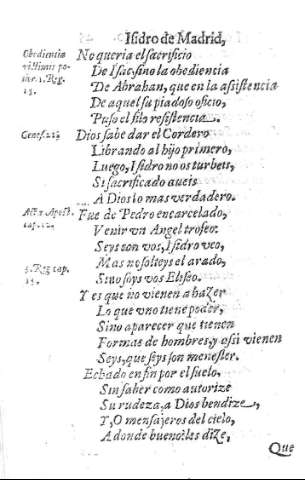 Isidro de Madrid,
Obedientia
victimis po-
tior. 1. Reg.
15.
No queria el sacrificio
De Isac, sino la obediencia
De Abrahan, que en la asistencia
De aquel su piadoso oficio,
Puso el sin resistencia.
Genes. 22.
Dios sabe dar el Cordero
Librando al hijo primero,
Luego, Isidro no os turbeis,
Si sacrificado aueis
A Dios lo mas verdadero.
Act. Apost.
cap. 12.
Fue de Pedro encarcelado,
Venir vn Angel trofeo.
Seys son vos, Isidro veo,
Mas no solteys el arado,
Sino soys vos Eliseo.
Reg. cap.
Y es que no vienen a hazer
Lo que vno tiene poder,
Sino aparecer que tienen
Formas de hombres, y assi vienen
Seys, que seys son menester.
Echado en fin por el suelo,
Sin saber como autorize
Su rudeza, a Dios bendize,
Y, O mensajeros del cielo,
A donde bueno: les dize,
Que